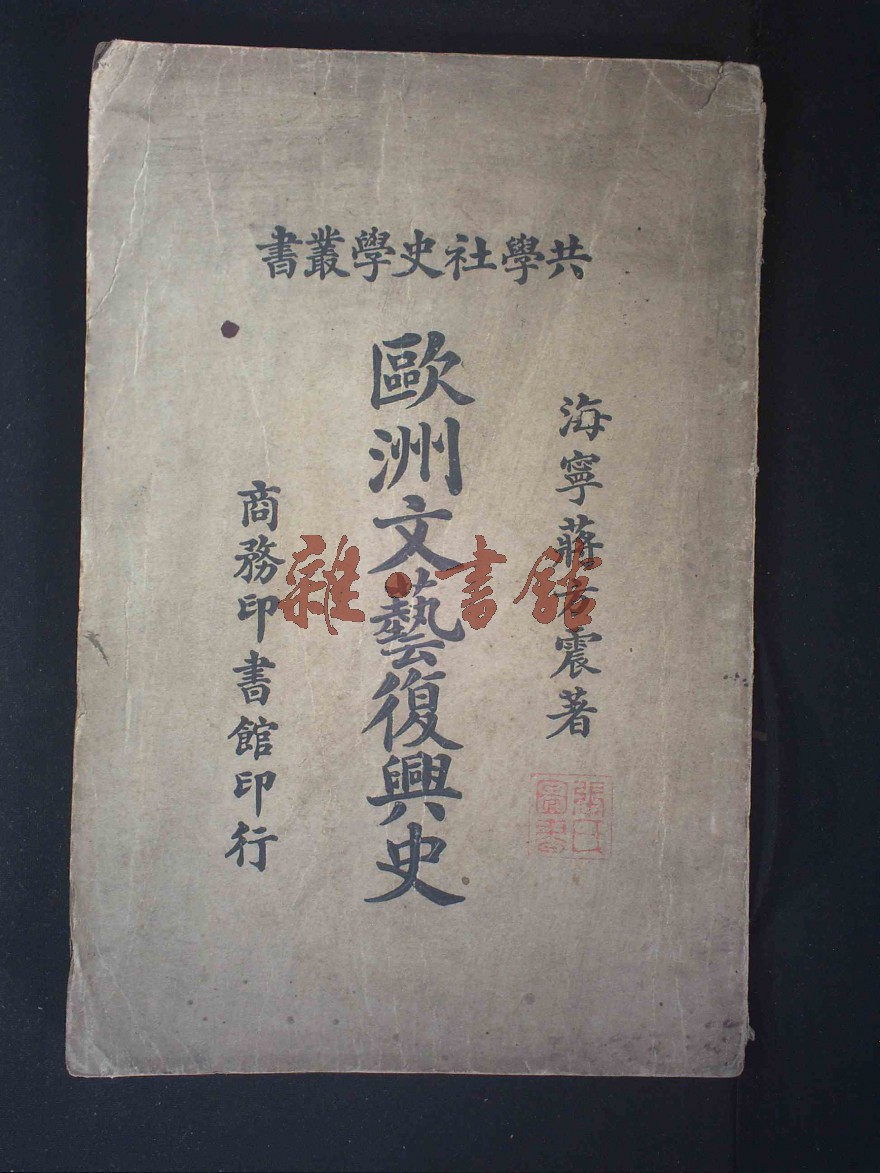 共學社史學叢書
海寧蔣方震著
歐洲文藝復興史
商務印書館印行
雜·書館
張氏圖書